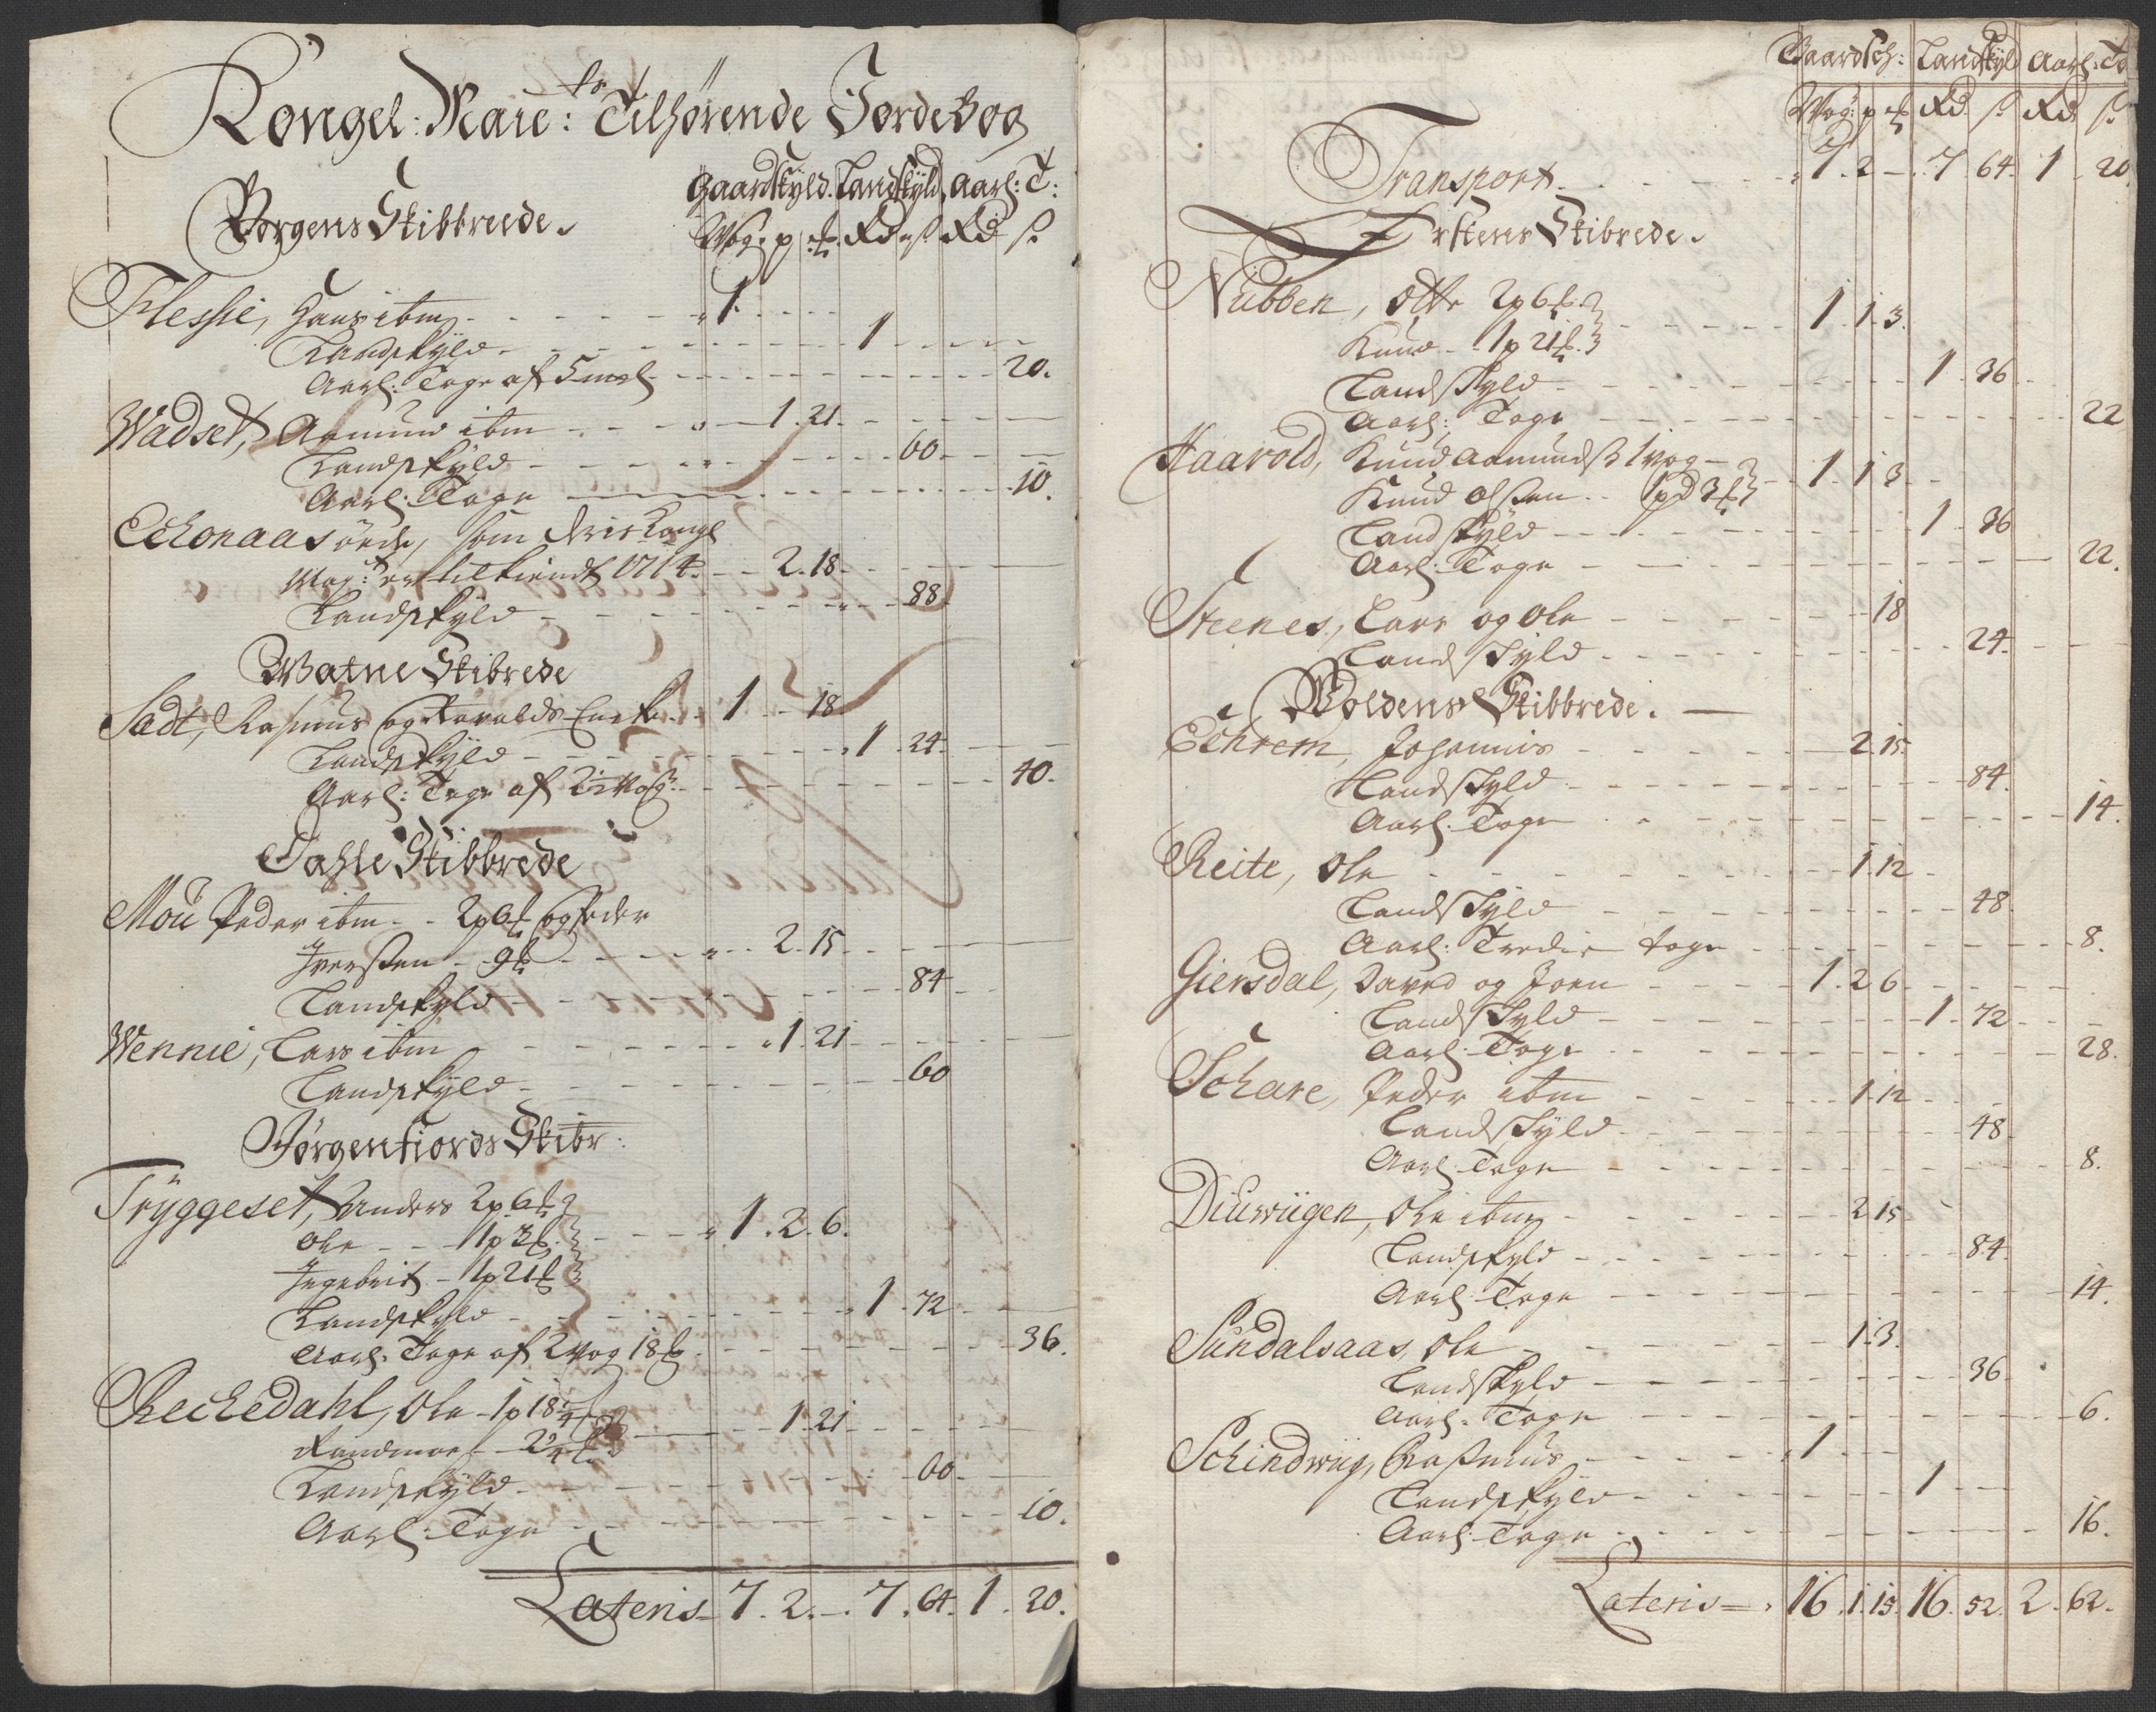 Kongel: Maie:ts Tilhørende Jordebog
Gaardskyld. Landskyld. Aarl: T:
Borgens Skibbreede.
Wog. p ℔ Rd ß Rd ß
Flessie, Hans ibm - 1.
Landskyld - 1
Aarl: Tage af 5 mæl - 20.
Wadset, Aamund ibm - 1. 21.
Landskyld - 60
Aarl: Tage - 10.
Echonaas øede, som hris Kongl
May:t er tilkiendt 1714. - 2. 18.
Landskyld - 88
Watne Skibrede
Sadt, Rasmus og Haralds Encke - 1 - 18
Landskyld - 1. 24.
Aarl: Tage af 2½ Wog: - 40.
Dahle Skibbrede
Mou Peder ibm - 2p 6℔ og Peder
Iverßen - 9℔ - 2. 15
Landskyld - 84
Wennie, Lars ibm - 1. 21
Landskyld - 60
Jørgenfiords Skibr:
Tryggeset, Anders 2p. 6℔
Ole - 1p 3℔ - 1. 2. 6.
Ingebrit - 1p 21℔
Landskyld - 1. 72
Aarl: Tage af 2 Wog 18℔ - 36.
Reckedahl, Ole - 1p 18¾
Randmoe - 2¼℔ - 1. 21
Landskyld - 60
Aarl: Tage - 10.
Lateris - 7. 2. - 7. 64. 1. 20.
Gaardsch: Landskyld Aarl: Ta
Wog: p ℔ Rd. ß Rd ß
Transport - 7. 2 - 7. 64. 1. 20.
Ørstens Skibrede.
Nubben, Otte 2p 6℔
Knud - 1p 21℔ - 1. 1. 3.
Landskyld - 1. 36
Aarl: Tage - 22
Haavold, Knud Aamundß 1 wog -
Knud Olßen - 1pd 3℔ - 1. 1 3
Landskyld - 1. 36
Aarl: Tage - 22.
Steenes, Lars og Ole - 18
Landskyld - 24.
Woldens Skibbrede.
Echrem, Johannis - 2. 15
Landskyld - 84.
Aarl: Tage - 14.
Reite, Ole - 1. 12
Landskyld - 48
Aarl: Tredie tage - 8.
Giersdal, David og Joen - 1. 2 6
Landskyld - 1. 72
Aarl: Tage - 28.
Schare, Peder ibm - 1. 12
Landskyld - 48
Aarl: Tage - 8.
Diuswiigen, Ole ibm - 2 15
Landskyld - 84.
Aarl: Tage - 14.
Sundalsaas, Ole - 1. 3.
Landskyld - 36
Aarl: Tage - 6.
Schindwiig, Raßmus - 1
Landskyld - 1
Aarl: Tage - 16.
Lateris - 16. 1. 15. 16. 52. 2. 62.